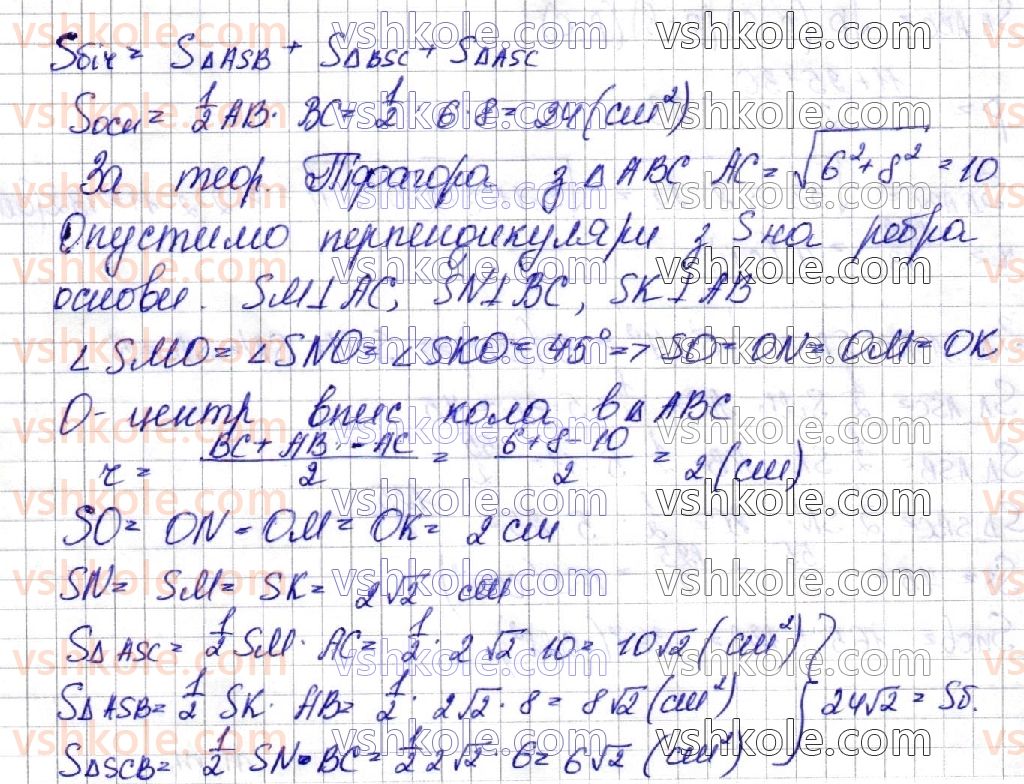 Sбіч = S△ASB + S△BSC + S△ASC
Sосн = 1/2 AB · BC = 1/2 · 6 · 8 = 24 (см²)
За теор. Піфагора з △ABC AC = √(6² + 8²) = 10
Опустимо перпендикуляри з S на ребра
основи. SM⊥AC, SN⊥BC, SK⊥AB
∠SMO = ∠SNO = ∠SKO = 45° => SO = ON = OM = OK
O - центр впис кола в △ABC
r = (BC + AB - AC)/2 = (6 + 8 - 10)/2 = 2 (см)
SO = ON = OM = OK = 2 см
SN = SM = SK = 2√2 см
S△ASC = 1/2 SM · AC = 1/2 · 2√2 · 10 = 10√2 (см²)
S△ASB = 1/2 SK · AB = 1/2 · 2√2 · 8 = 8√2 (см²) } 24√2 = Sб.
S△SCB = 1/2 SN · BC = 1/2 2√2 · 6 = 6√2 (см²)
vshkole.com